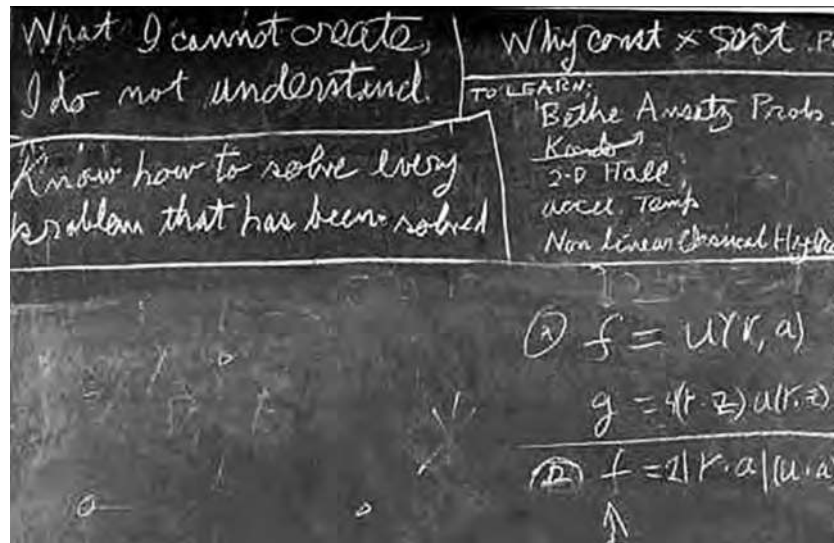 What I cannot create,
I do not understand.
Know how to solve every
problem that has been solved
Why const × sort .P
TO LEARN:
Bethe Ansatz Probs.
Kondo
2-D Hall
accel. Temp
Non Linear Classical Hydro
f = u(r, a)
g = 4(r·z) u(r·z)
f = 2|r·a|(u·a